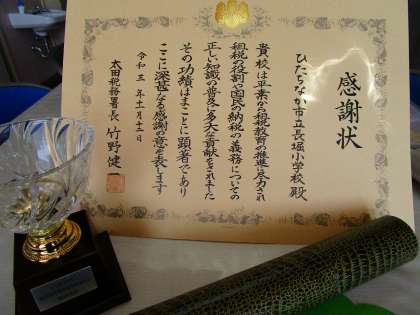 感謝状
ひたちなか市立長堀小学校殿
貴校は平素から租税教育の推進に尽力され
租税の役割や国民の納税の義務についての
正しい知識の普及に多大な貢献をされました
その功績はまことに顕著であり
ここに深甚なる感謝の意を表します
令和三年十一月十二日
太田税務署長 竹野健二